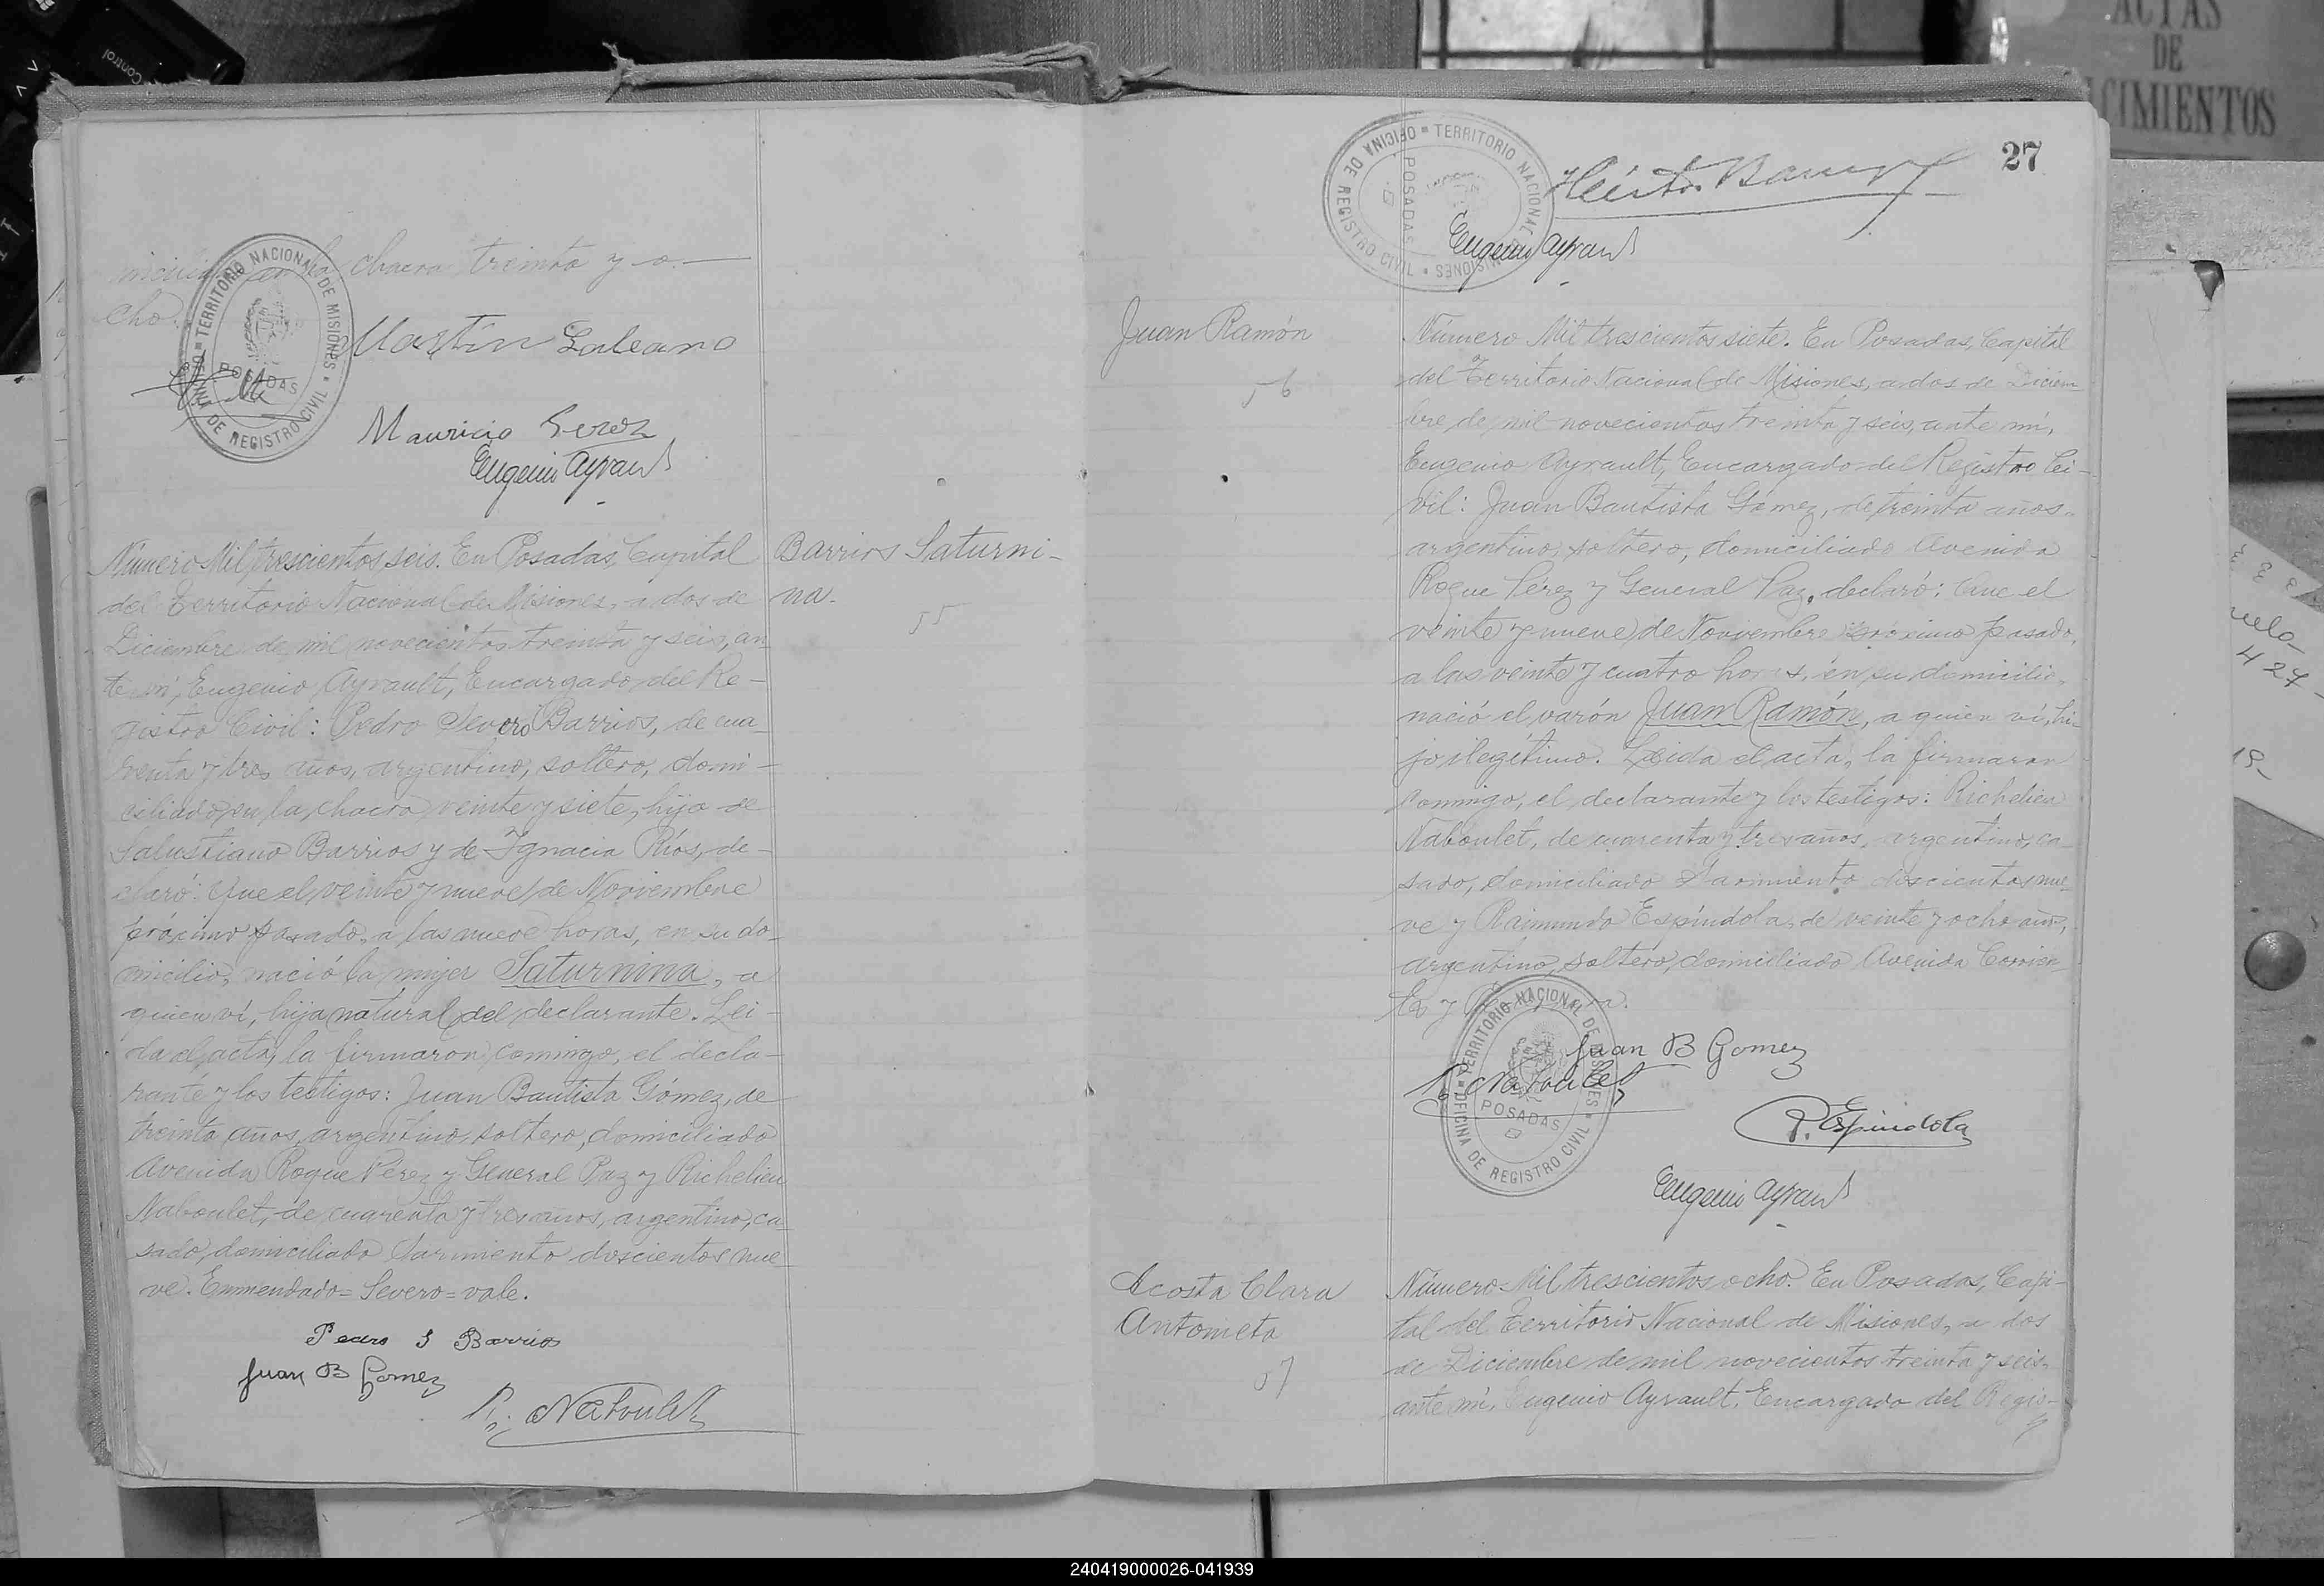 Control
ACTAS
DE
CIMIENTOS
chacra treinta y o-
cho.
TERRITORIO NACIONAL DE MISIONES
OFICINA DE REGISTRO CIVIL
POSADAS
Martín Galeano
Mauricio Gerez
Eugenio Ayrault
Número Mil trescientos seis. En Posadas, Capital
del Territorio Nacional de Misiones, a dos de
Diciembre de mil novecientos treinta y seis, an-
te mí, Eugenio Ayrault, Encargado del Re-
gistro Civil: Pedro Severo Barrios, de cua-
renta y tres años, argentino, soltero, domi-
ciliado en la chacra veinte y siete, hijo de
Salustiano Barrios y de Ignacia Ríos, de-
claró: Que el veinte y nueve de Noviembre
próximo pasado, a las nueve horas, en su do-
micilio, nació la mujer Saturnina, a
quien ví, hija natural del declarante. Leí-
da el acta, la firmaron conmigo, el decla-
rante y los testigos: Juan Bautista Gómez, de
treinta años, argentino, soltero, domiciliado
Avenida Roque Pérez y General Paz y Richelieu
Naboulet, de cuarenta y tres años, argentino, ca-
sado, domiciliado Sarmiento doscientos nue-
ve. Enmendado=Severo=vale.
Pedro S Barrios
Juan B Gomez
R. Naboulet
Barrios Saturni-
na.
55
27
OFICINA DE REGISTRO CIVIL
TERRITORIO NACIONAL DE MISIONES
POSADAS
Eugenio Ayrault
Juan Ramón
56
Número Mil trescientos siete. En Posadas, Capital
del Territorio Nacional de Misiones, a dos de Diciem-
bre de mil novecientos treinta y seis, ante mí,
Eugenio Ayrault, Encargado del Registro Ci-
vil: Juan Bautista Gómez, de treinta años,
argentino, soltero, domiciliado Avenida
Roque Pérez y General Paz, declaró: Que el
veinte y nueve de Noviembre próximo pasado,
a las veinte y cuatro horas, en su domicilio,
nació el varón Juan Ramón, a quien ví, hi-
jo ilegítimo. Leída el acta, la firmaron
conmigo, el declarante y los testigos: Richelieu
Naboulet, de cuarenta y tres años, argentino, ca-
sado, domiciliado Sarmiento doscientos nue-
ve y Raimundo Espíndola, de veinte y ocho años,
argentino, soltero, domiciliado Avenida Corrien-
tes y
TERRITORIO NACIONAL DE MISIONES
OFICINA DE REGISTRO CIVIL
POSADAS
Juan B Gomez
R. Naboulet
R. Espindola
Eugenio Ayrault
Acosta Clara
Antonieta
57
Número Mil trescientos ocho. En Posadas, Capi-
tal del Territorio Nacional de Misiones, a dos
de Diciembre de mil novecientos treinta y seis,
ante mí, Eugenio Ayrault, Encargado del Regis-
424
240419000026-041939